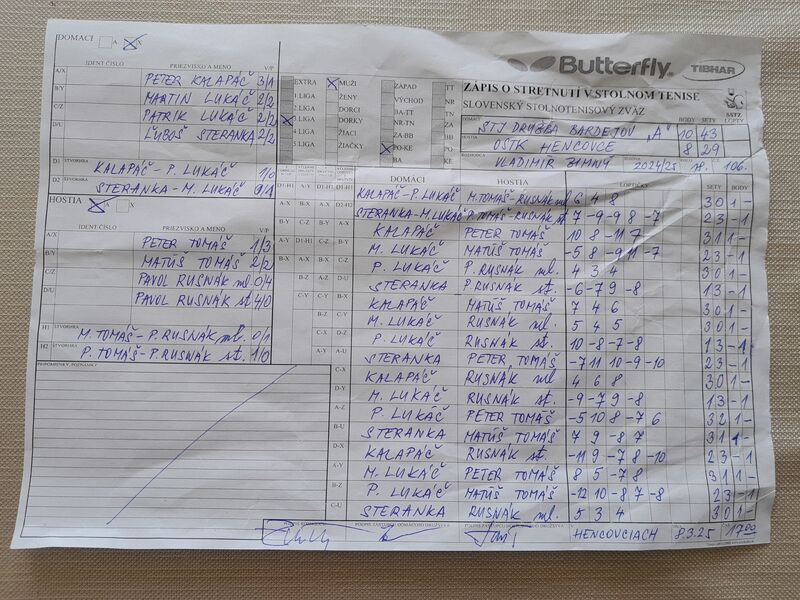 DOMÁCI A X
Butterfly TIBHAR
IDENT ČÍSLO PRIEZVISKO A MENO V/P
A/X PETER KALAPÁČ 3/1
B/Y MARTIN LUKÁČ 2/2
C/Z PATRIK LUKÁČ 2/2
D/U ĽUBOŠ STERANKA 2/2
D1 ŠTVORHRA KALAPÁČ-P. LUKÁČ 1/0
D2 STERANKA-M. LUKÁČ 0/1
EXTRA MUŽI ZÁPAD TT
1. LIGA ŽENY VÝCHOD NR
2. LIGA DORCI BA-TT TN
3. LIGA DORKY NR-TN ZA
4. LIGA ŽIACI ZA-BB BB
5. LIGA ŽIAČKY PO-KE PO
BA KE
ZÁPIS O STRETNUTÍ V STOLNOM TENISE
SLOVENSKÝ STOLNOTENISOVÝ ZVÄZ
SSTZ
BODY SETY LOPTY
STJ DRUŽBA BARDEJOV "A" 10 43
OŠTK HENCOVCE 8 29
VLADIMÍR ZIMNÝ 2024/25 18. 106.
HOSTIA A X
IDENT ČÍSLO PRIEZVISKO A MENO V/P
A/X PETER TOMÁŠ 1/3
B/Y MATÚŠ TOMÁŠ 2/2
C/Z PAVOL RUSNÁK ml. 0/4
D/U PAVOL RUSNÁK st. 4/0
H1 ŠTVORHRA M. TOMÁŠ-P. RUSNÁK ml. 0/1
H2 ŠTVORHRA P. TOMÁŠ-P. RUSNÁK st. 1/0
PRIPOMIENKY, POZNÁMKY
DOMÁCI HOSTIA LOPTIČKY SETY BODY
KALAPÁČ-P. LUKÁČ M. TOMÁŠ-RUSNÁK ml 6 4 8 3 0 1 -
STERANKA-M. LUKÁČ P. TOMÁŠ-RUSNÁK st 7 -9 -9 8 -7 2 3 - 1
KALAPÁČ PETER TOMÁŠ 10 8 -11 7 3 1 1 -
M. LUKÁČ MATÚŠ TOMÁŠ -5 8 -9 11 -7 2 3 - 1
P. LUKÁČ P. RUSNÁK ml. 4 3 4 3 0 1 -
STERANKA P. RUSNÁK st. -6 -7 9 -8 1 3 - 1
KALAPÁČ MATÚŠ TOMÁŠ 7 4 6 3 0 1 -
M. LUKÁČ RUSNÁK ml. 5 4 5 3 0 1 -
P. LUKÁČ RUSNÁK st. 10 -8 -7 -8 1 3 - 1
STERANKA PETER TOMÁŠ -7 11 10 -9 -10 2 3 - 1
KALAPÁČ RUSNÁK ml 4 6 8 3 0 1 -
M. LUKÁČ RUSNÁK st. -9 -7 9 -8 1 3 - 1
P. LUKÁČ PETER TOMÁŠ -5 10 8 -7 6 3 2 1 -
STERANKA MATÚŠ TOMÁŠ 7 9 -8 7 3 1 1 -
KALAPÁČ RUSNÁK st -11 9 -7 8 -10 2 3 - 1
M. LUKÁČ PETER TOMÁŠ 8 5 -7 8 3 1 1 -
P. LUKÁČ MATÚŠ TOMÁŠ -12 10 -8 7 -8 2 3 - 1
STERANKA RUSNÁK ml. 5 3 4 3 0 1 -
HENCOVCIACH 8.3.25 17.00